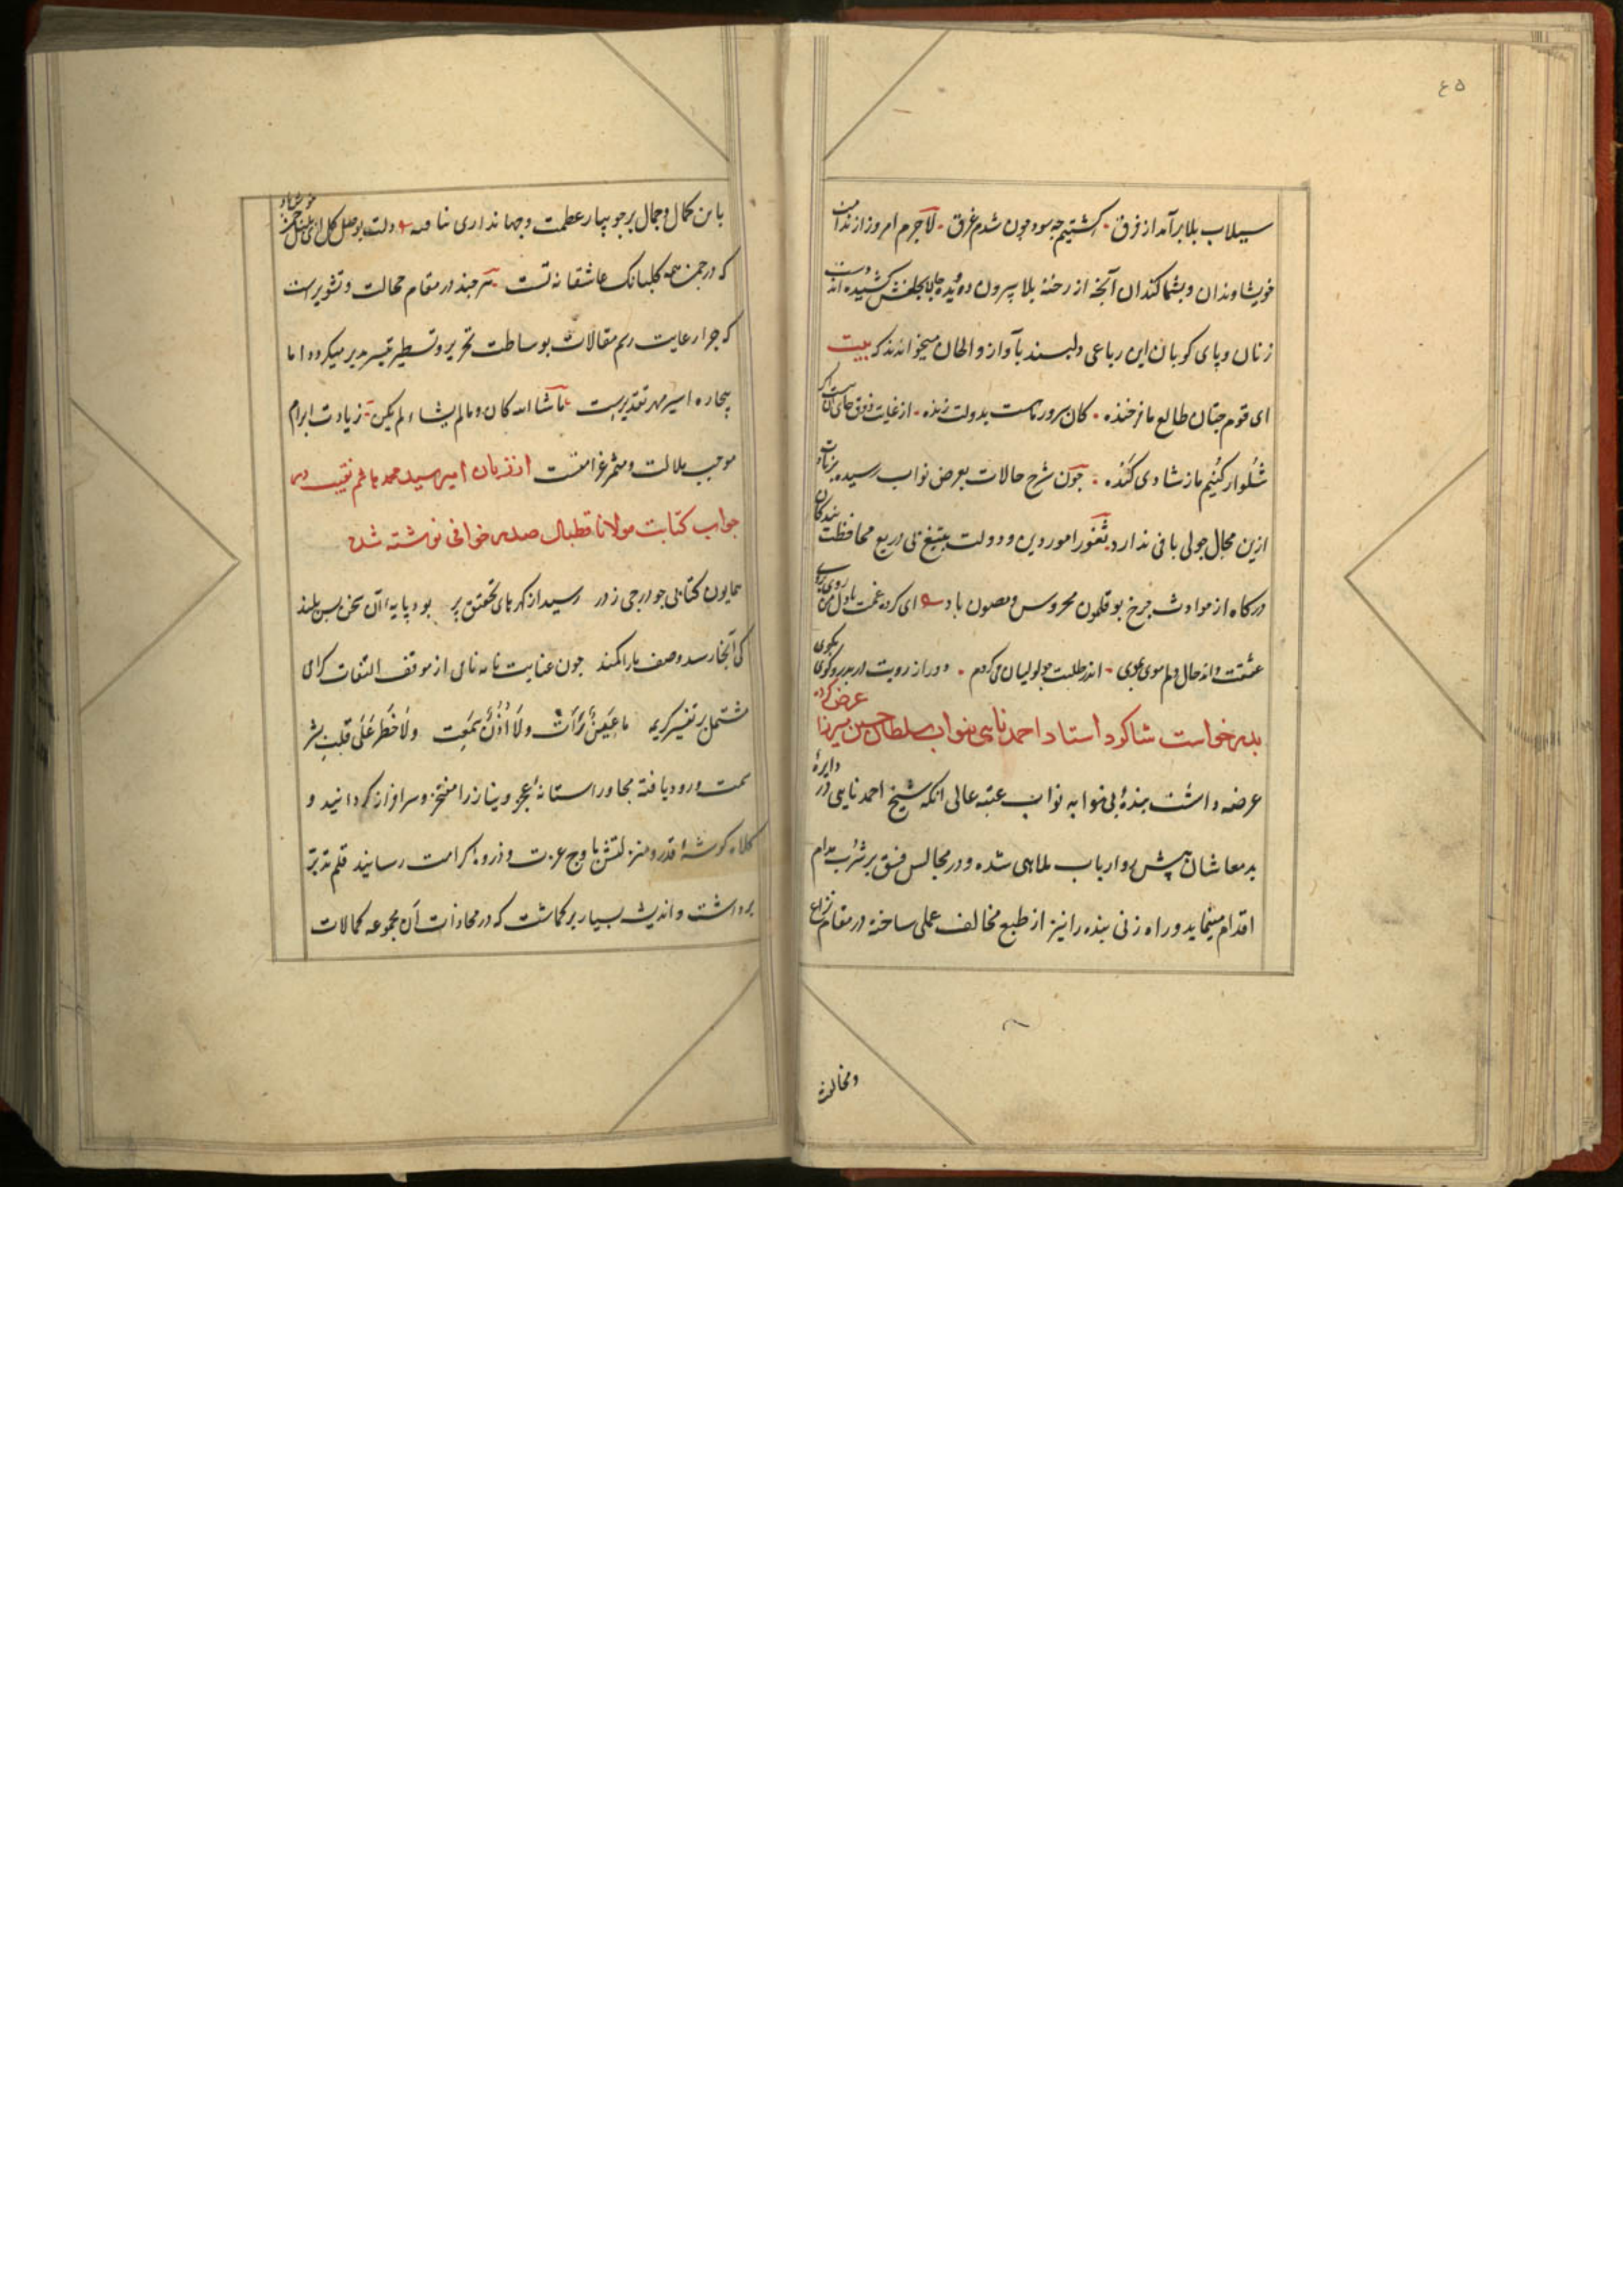 ٤٥
سیلاب بلا برآمد از فرق کشتیم چه سود چون شدم غرق لاجرم امروز از ندامت
خویشاوندان و بشماکندان آنجه از رخنهٔ بلا بیرون دویده کشیده اند دست
زنان و پای کوبان این رباعی دلپسند بآواز و الحان میخواندند که بیت
ای قوم جنان طالع ما فرخنده کان سرور ماست بدولت زنده از غایت ذوق جای آن هست اگر
شلوار کنیم ما ز شادی کنده چون شرح حالات بعرض نواب رسیده
ازین مجال جولی باقی ندارد ثغور امور دین و دولت بتیغ بی دریغ محافظت بندکان
درکاه از حوادث چرخ بوقلمون محروس و مصون باد ای کرده غمت با دل من روی بروی
عشقت حال دلم موی بموی اندر طلبت جو لولیان می کردم دور از رویت در بدر و کوی بکوی
بدرخواست شاکرد استاد احمد نایی بنواب سلطان حسین میرزا عرض کرده
عرضه داشت بندهٔ بی نوا به نواب عتبه عالی انکه شیخ احمد نایی در دایرهٔ
بدمعاشان پیش رو ارباب ملاهی شده و در مجالس فسق بر شرب مدام
اقدام مینماید و راه زنی بنده را نیز از طبع مخالف عملی ساخته در مقام نزاع
و مخالفت
با این کمال و جمال بر جویبار عظمت و جهانداری دولت بوصل کل ای بلبل چمن خوش باد
که در چمن همه کلبانک عاشقانه تست هر چند در مقام خجالت و تشویر است
که چرا رعایت رسم مقالات بوساطت تحریر و تسطیر میسر میکردد اما
بیچاره اسیر تقدیرست ما شا الله کان و ما لم یشاء لم یکن زیادت ابرام
موجب ملالت و مثمر غرامتست از زبان امیر سید محمد هاشم نقیب در
جواب کتابت مولانا قطبال صدر خوافی نوشته شد
همایون کتابی چو درجی ز در رسید از کهرهای تحقیق پر بود پایه آن سخن بس بلند
کی آنجا رسد وصف ما را کمند چون عنایت نامه نامی از موقف التفات کرامی
مشتمل بر تفسیر کریمه ما عین رأت ولا اذن سمعت ولا خطر علی قلب بشر
سمت ورود یافته مجاور استانهٔ عجز و نیاز را مفتخر و سرافراز کردانید و
کلاه کوشهٔ قدر و منزلتش باوج عزت و ذروهٔ کرامت رسانید قلم تدبر
برداشت و اندیشه بسیار بر کماشت که در محاذات آن مجموعه کمالات